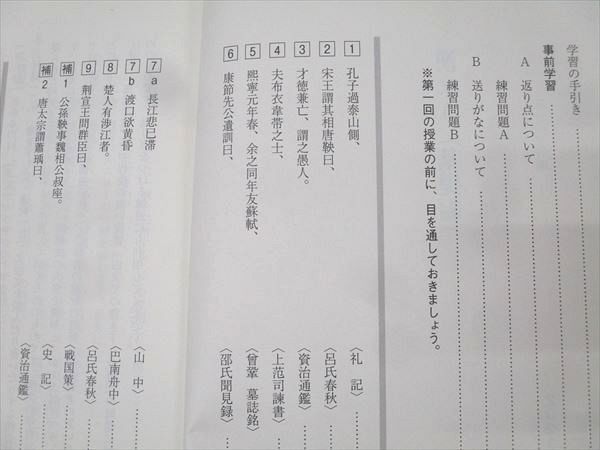 学習の手引き
事前学習
A 返り点について
練習問題A
B 送りがなについて
練習問題B
※第一回の授業の前に、目を通しておきましょう。
1 孔子過泰山側、 〈礼記〉
2 宋王謂其相唐鞅曰、 〈呂氏春秋〉
3 才徳兼亡、謂之愚人。 〈資治通鑑〉
4 夫布衣韋帯之士、 〈上范司諫書〉
5 熙寧元年春、余之同年友蘇軾、 〈曾鞏 墓誌銘〉
6 康節先公遺訓曰、 〈邵氏聞見録〉
7a 長江悲已滞 〈山中〉
7b 渡口欲黄昏 〈巴南舟中〉
8 楚人有渉江者。 〈呂氏春秋〉
9 荊宣王問群臣曰、 〈戦国策〉
補1 公孫鞅事魏相公叔座。 〈史記〉
補2 唐太宗謂蕭瑀曰、 〈資治通鑑〉